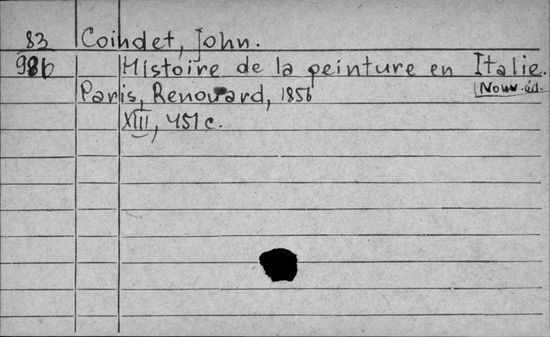 83 Coindet, John.
986 Histoire de la peinture en Italie.
Nouv. éd.
Paris, Renouard, 1856
XIII, 451 c.